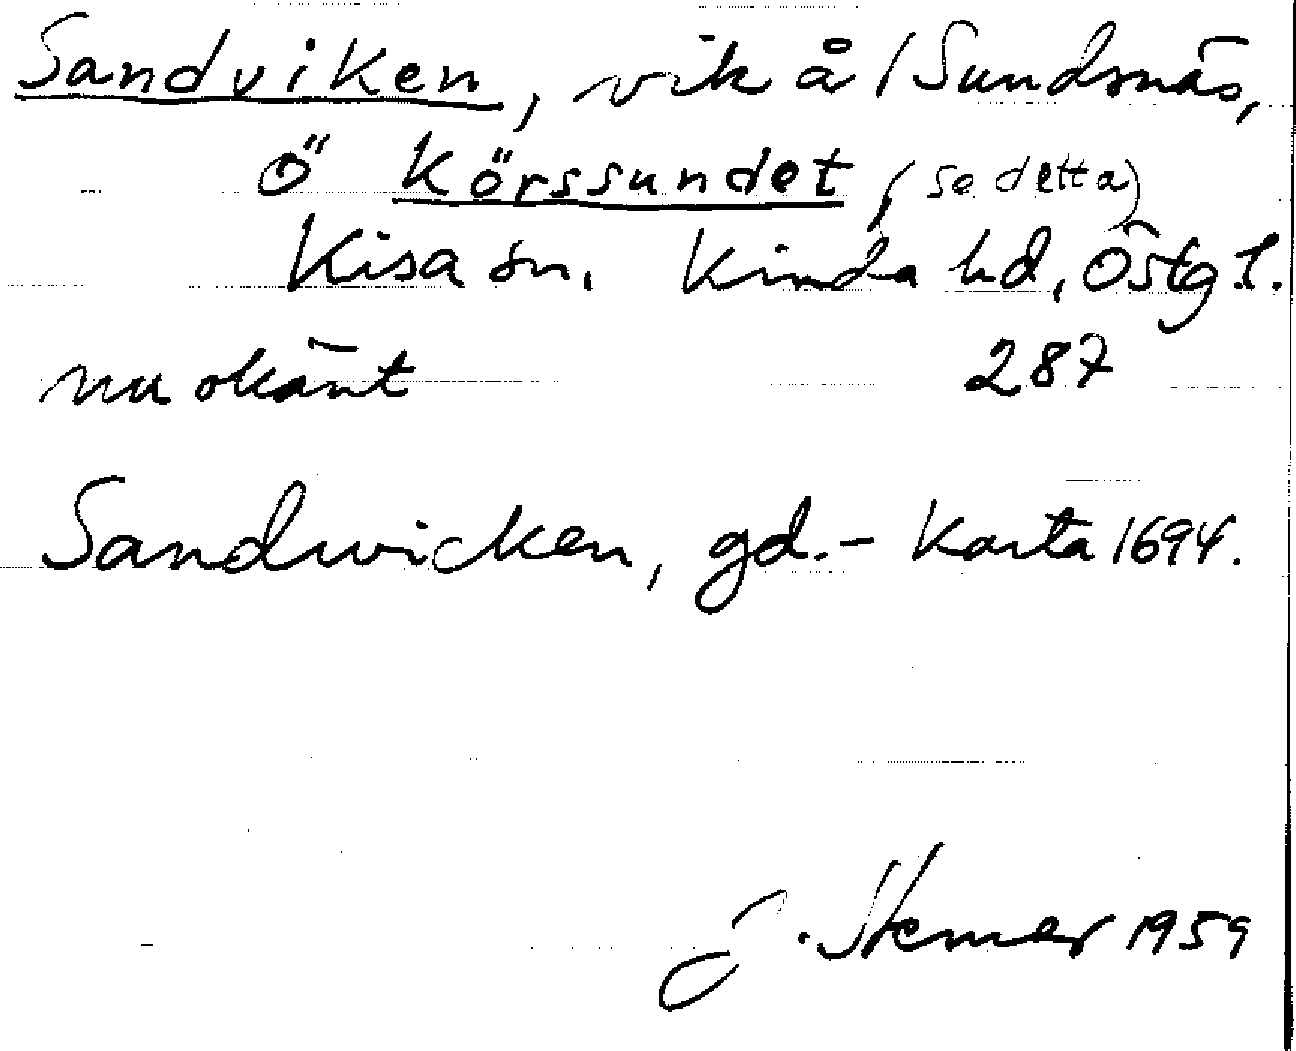 Sandviken, vik å / Sundsnäs,
Ö Körssundet (se detta)
Kisa sn. Kinda hd, Östg l.
nu okänt 287
Sandwicken, gd. - Karta 1694.
J. Stemer 1959